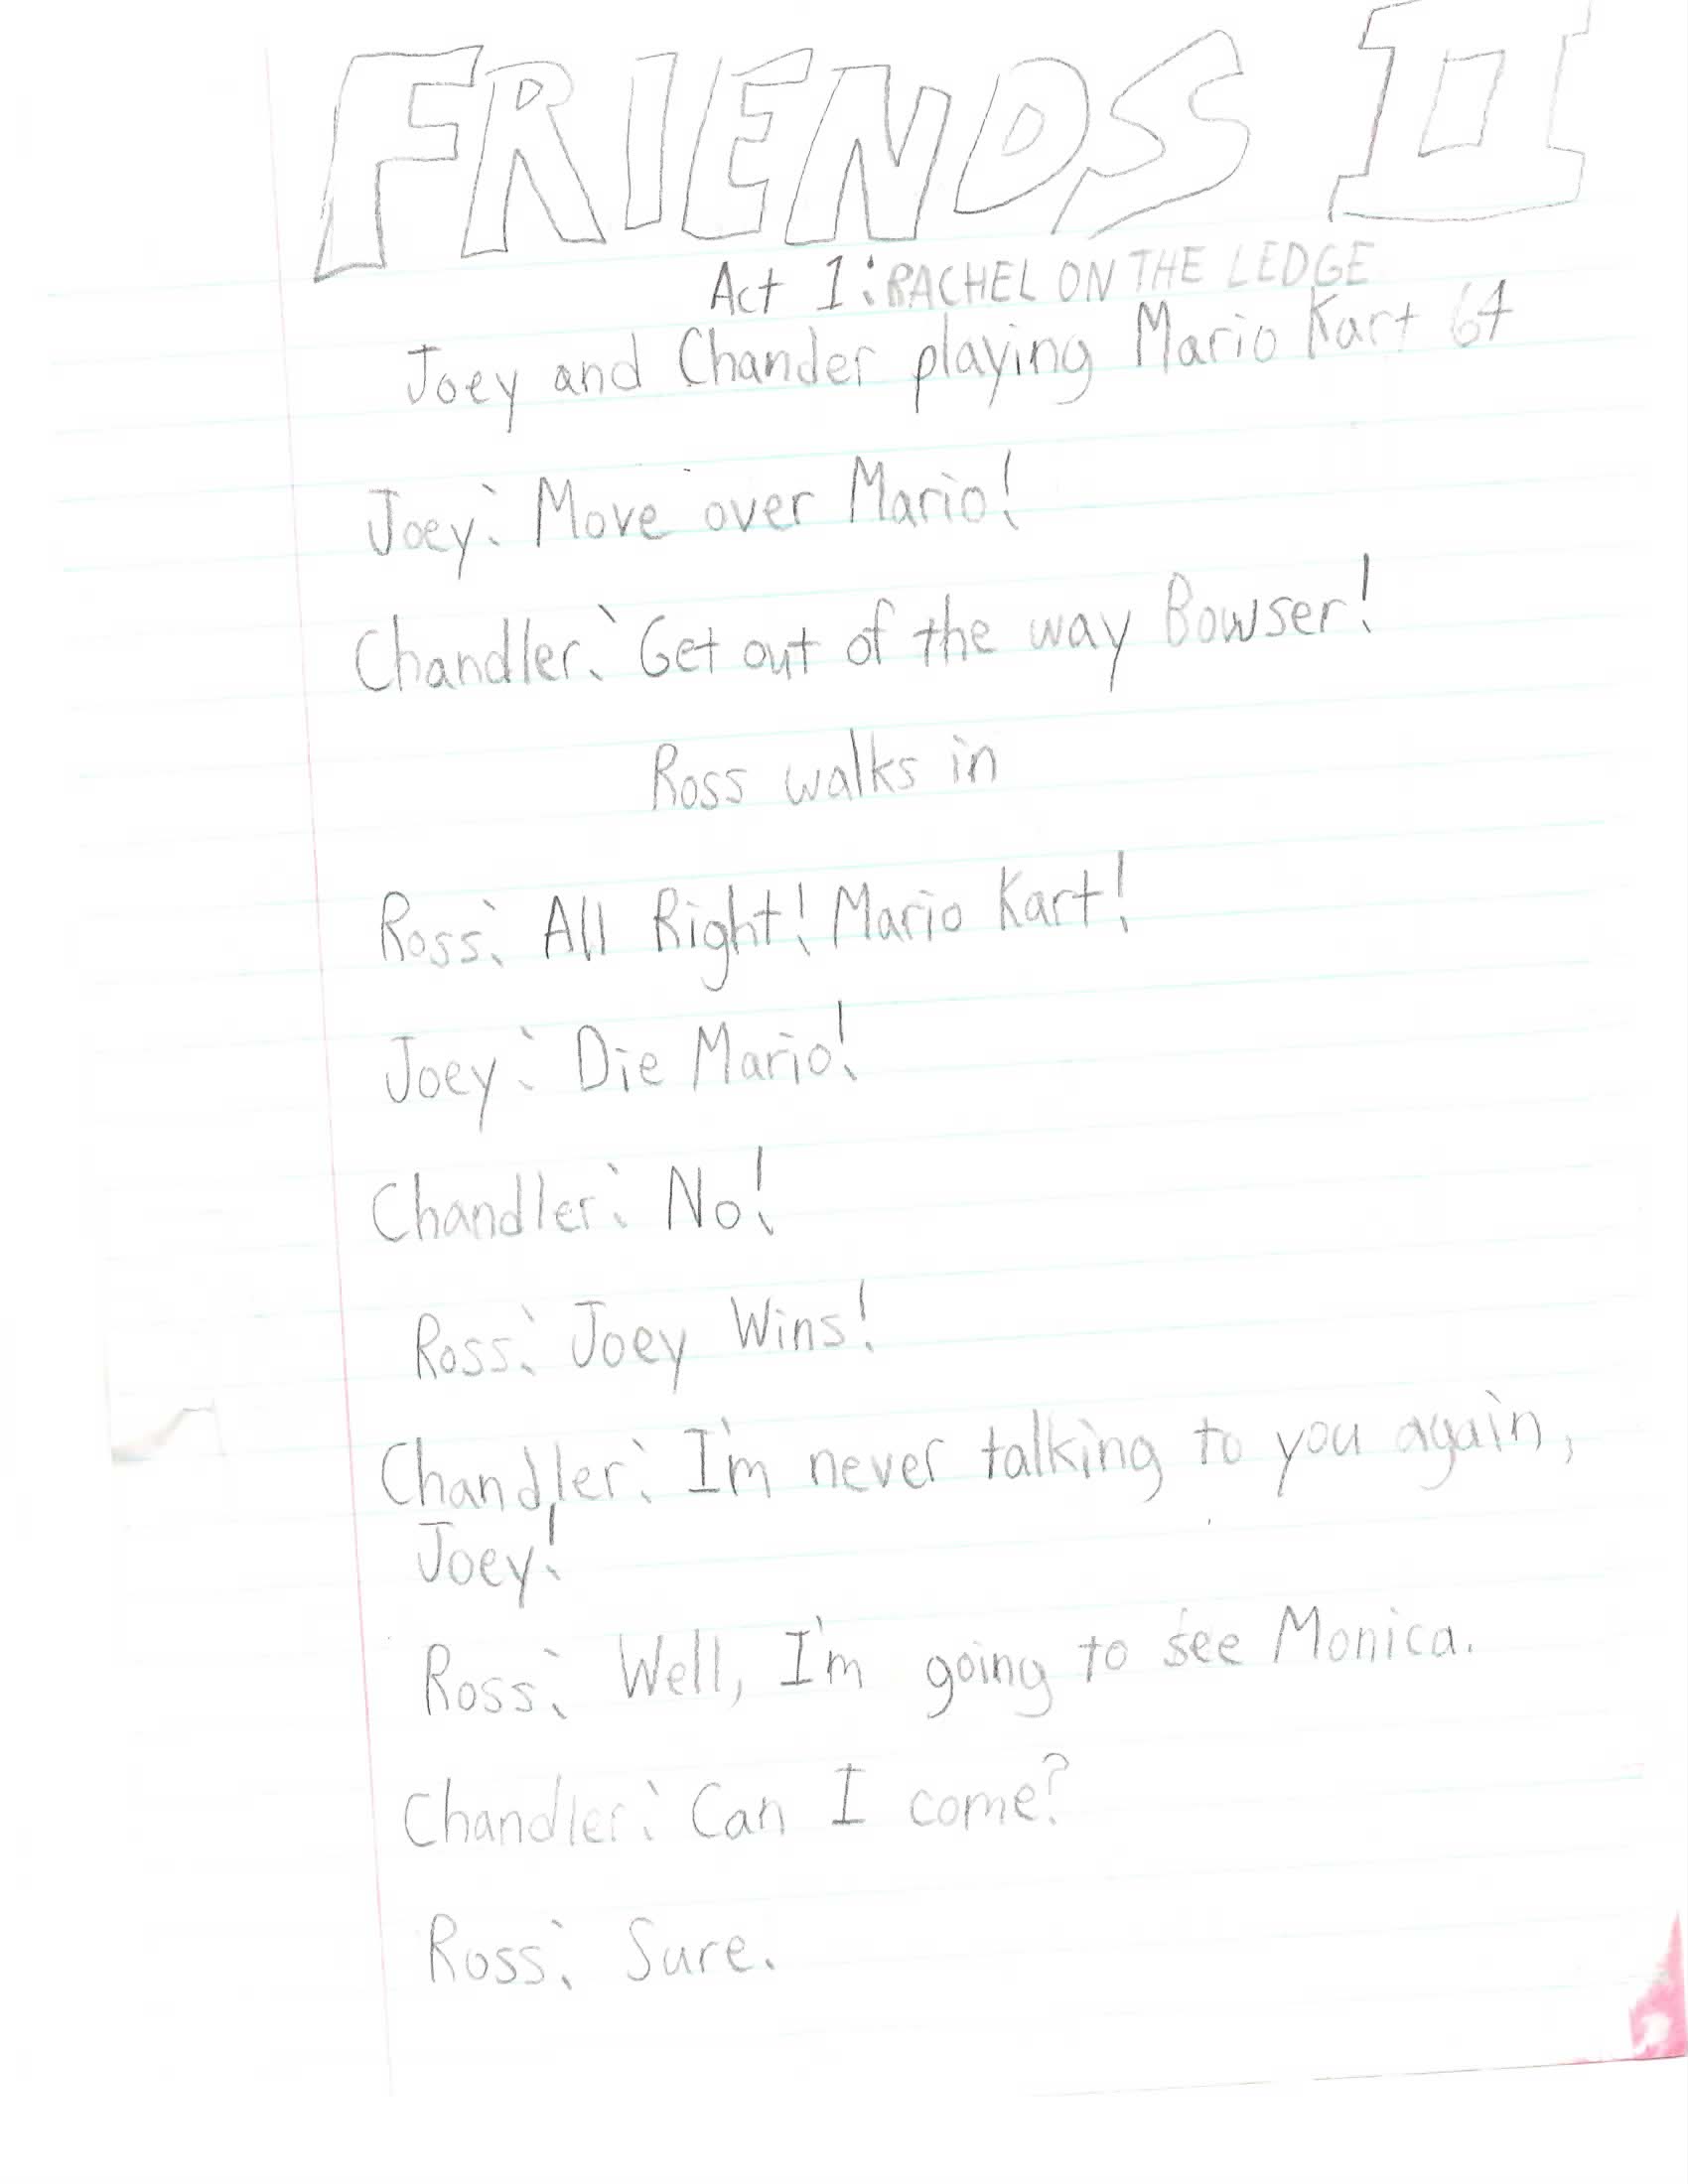 FRIENDS II
Act 1: RACHEL ON THE LEDGE
Joey and Chander playing Mario Kart 64
Joey: Move over Mario!
Chandler: Get out of the way Bowser!
Ross walks in
Ross: All Right! Mario Kart!
Joey: Die Mario!
Chandler: No!
Ross: Joey Wins!
Chandler: I'm never talking to you again,
Joey!
Ross: Well, I'm going to see Monica.
Chandler: Can I come?
Ross: Sure.